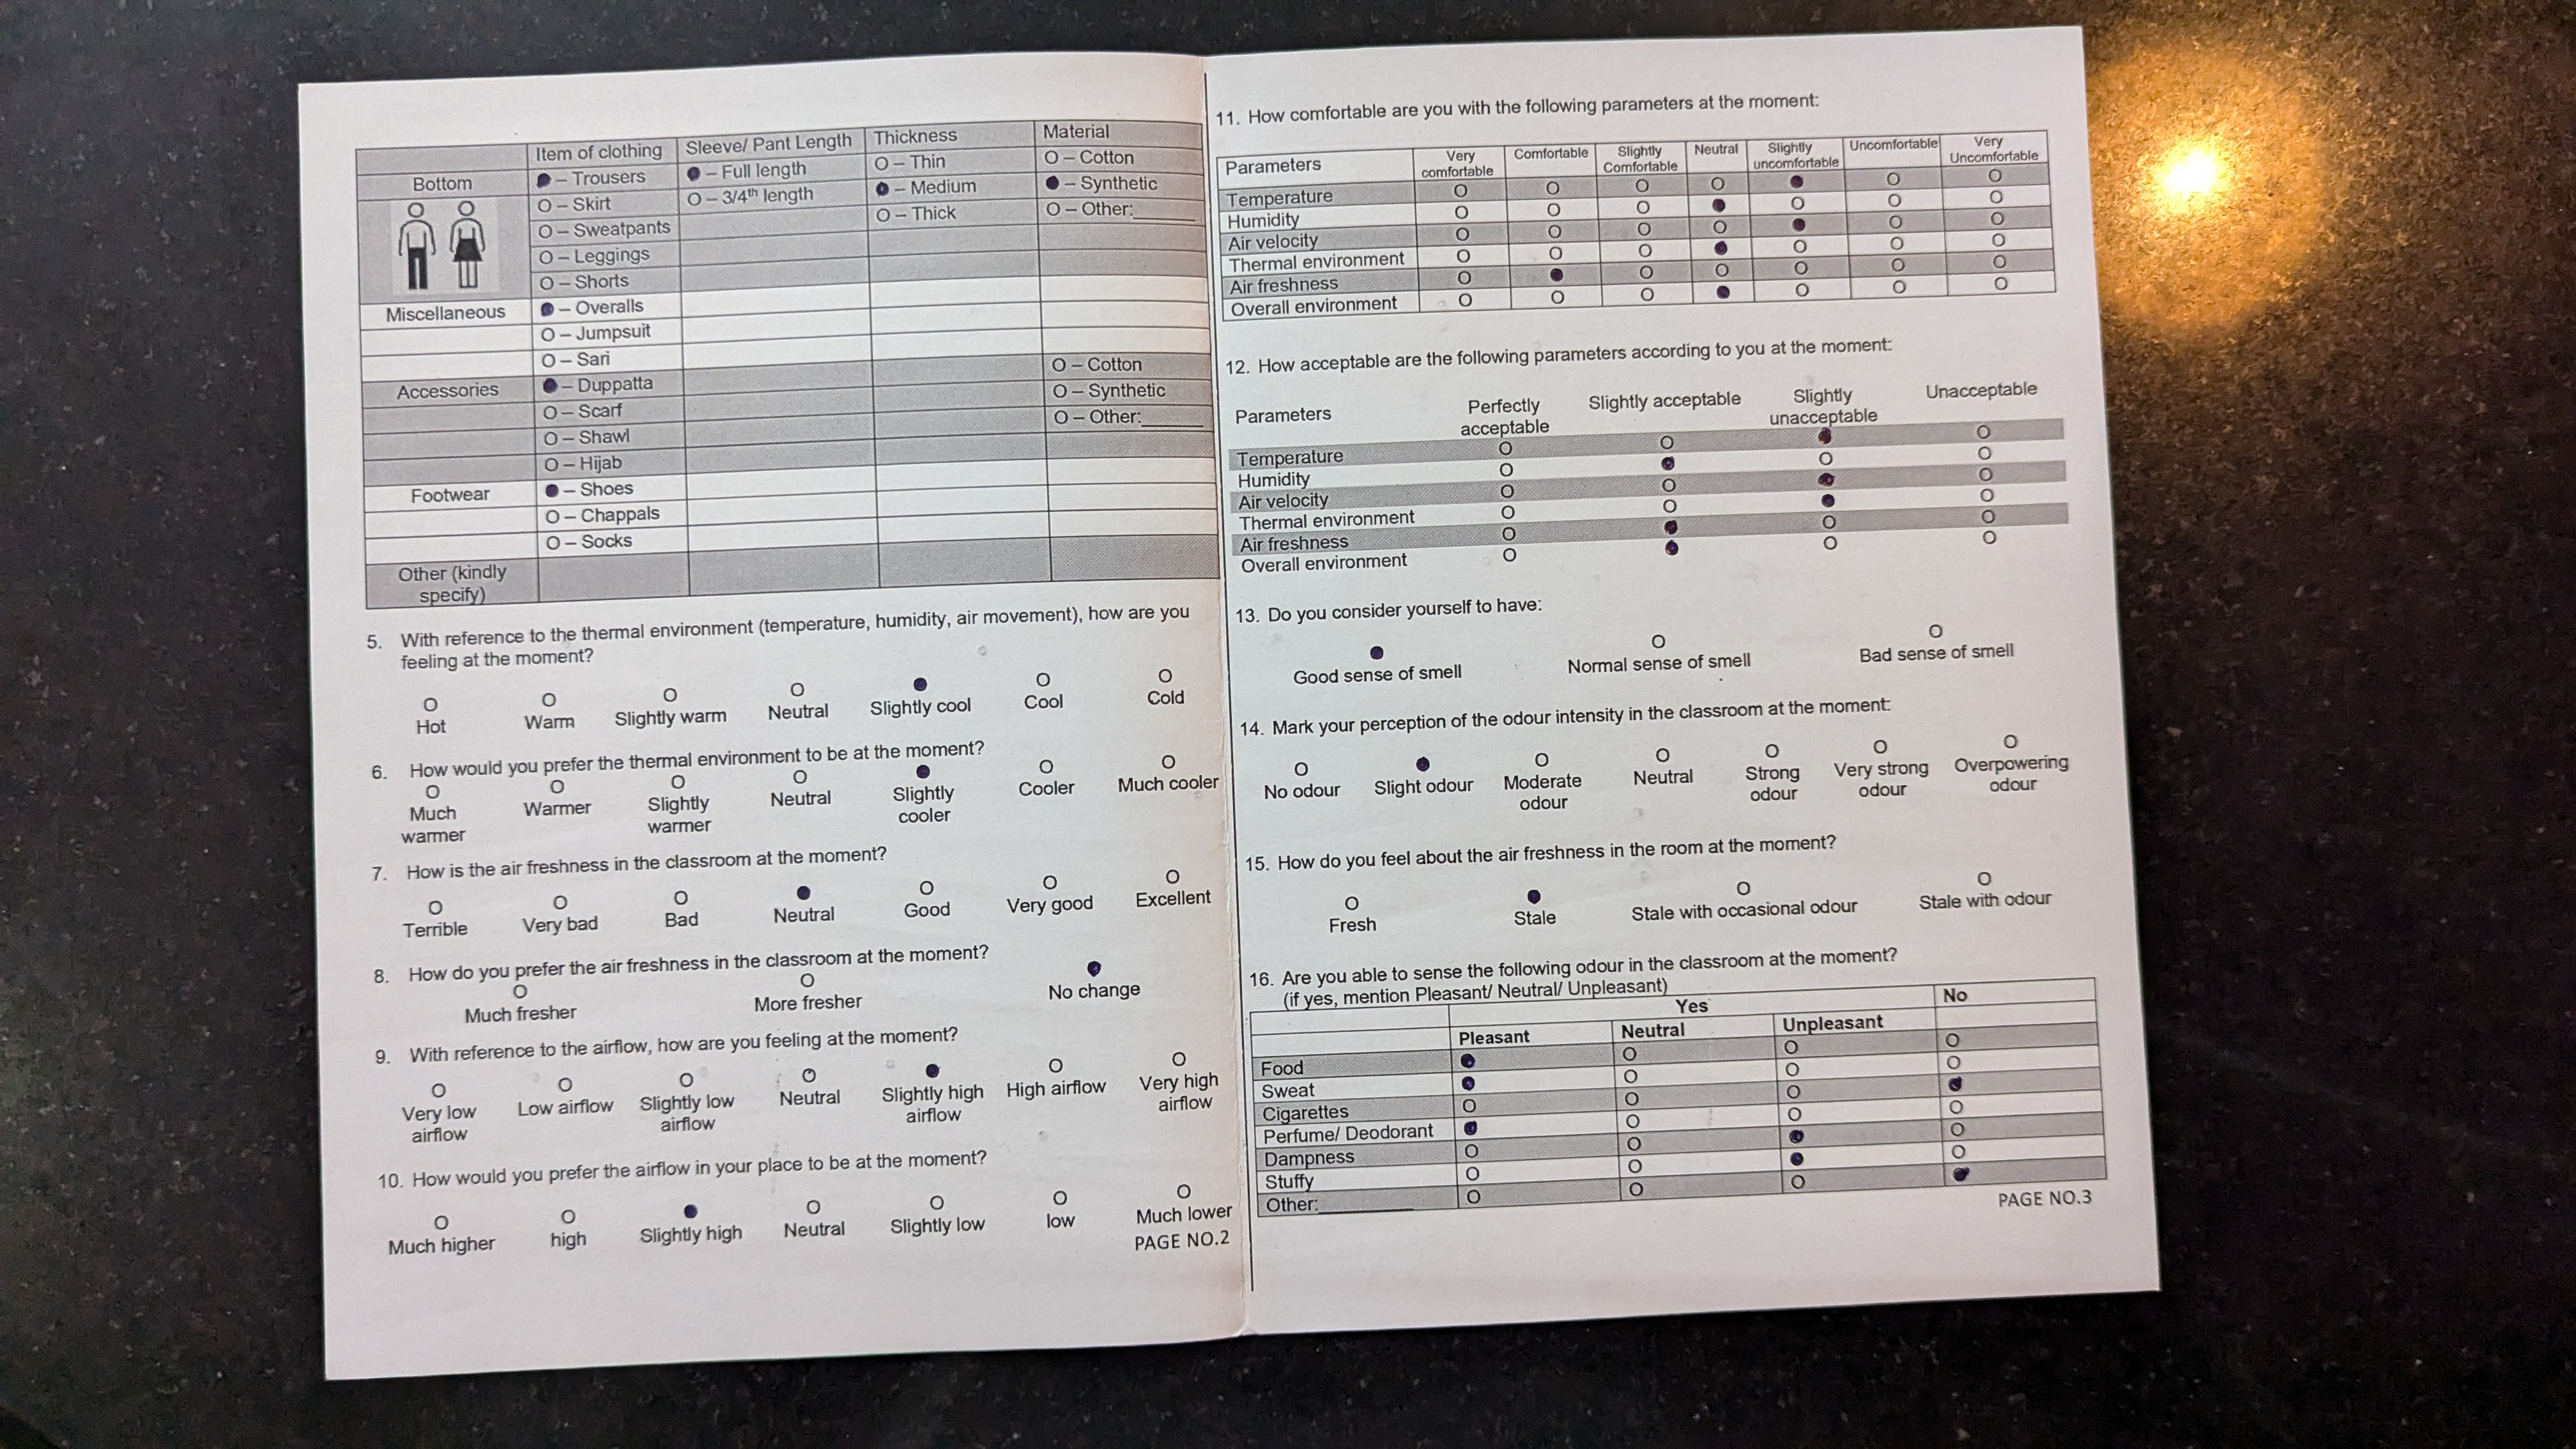 Item of clothing Sleeve/ Pant Length Thickness Material
Bottom ● – Trousers ● – Full length O – Thin O – Cotton
O – Skirt O – 3/4th length ● – Medium ● – Synthetic
O – Sweatpants O – Thick O – Other:______
O – Leggings
O – Shorts
Miscellaneous ● – Overalls
O – Jumpsuit
O – Sari
Accessories ● – Duppatta O – Cotton
O – Scarf O – Synthetic
O – Shawl O – Other:______
O – Hijab
Footwear ● – Shoes
O – Chappals
O – Socks
Other (kindly
specify)
5. With reference to the thermal environment (temperature, humidity, air movement), how are you
feeling at the moment?
O O O O ● O O
Hot Warm Slightly warm Neutral Slightly cool Cool Cold
6. How would you prefer the thermal environment to be at the moment?
O O O O ● O O
Much Warmer Slightly Neutral Slightly Cooler Much cooler
warmer warmer cooler
7. How is the air freshness in the classroom at the moment?
O O O ● O O O
Terrible Very bad Bad Neutral Good Very good Excellent
8. How do you prefer the air freshness in the classroom at the moment?
O O ●
Much fresher More fresher No change
9. With reference to the airflow, how are you feeling at the moment?
O O O O ● O O
Very low Low airflow Slightly low Neutral Slightly high High airflow Very high
airflow airflow airflow airflow
10. How would you prefer the airflow in your place to be at the moment?
O O ● O O O O
Much higher high Slightly high Neutral Slightly low low Much lower
PAGE NO.2
11. How comfortable are you with the following parameters at the moment:
Parameters Very Comfortable Slightly Neutral Slightly Uncomfortable Very
comfortable Comfortable uncomfortable Uncomfortable
Temperature O O O O ● O O
Humidity O O O ● O O O
Air velocity O O O O ● O O
Thermal environment O O O ● O O O
Air freshness O ● O O O O O
Overall environment O O O ● O O O
12. How acceptable are the following parameters according to you at the moment:
Parameters Perfectly Slightly acceptable Slightly Unacceptable
acceptable unacceptable
Temperature O O ● O
Humidity O ● O O
Air velocity O O ● O
Thermal environment O O ● O
Air freshness O ● O O
Overall environment O ● O O
13. Do you consider yourself to have:
● O O
Good sense of smell Normal sense of smell Bad sense of smell
14. Mark your perception of the odour intensity in the classroom at the moment:
O ● O O O O O
No odour Slight odour Moderate Neutral Strong Very strong Overpowering
odour odour odour odour
15. How do you feel about the air freshness in the room at the moment?
O ● O O
Fresh Stale Stale with occasional odour Stale with odour
16. Are you able to sense the following odour in the classroom at the moment?
(if yes, mention Pleasant/ Neutral/ Unpleasant)
Yes No
Pleasant Neutral Unpleasant
Food ● O O O
Sweat ● O O O
Cigarettes O O O ●
Perfume/ Deodorant ● O O O
Dampness O O ● O
Stuffy O O ● O
Other:__________ O O O ●
PAGE NO.3